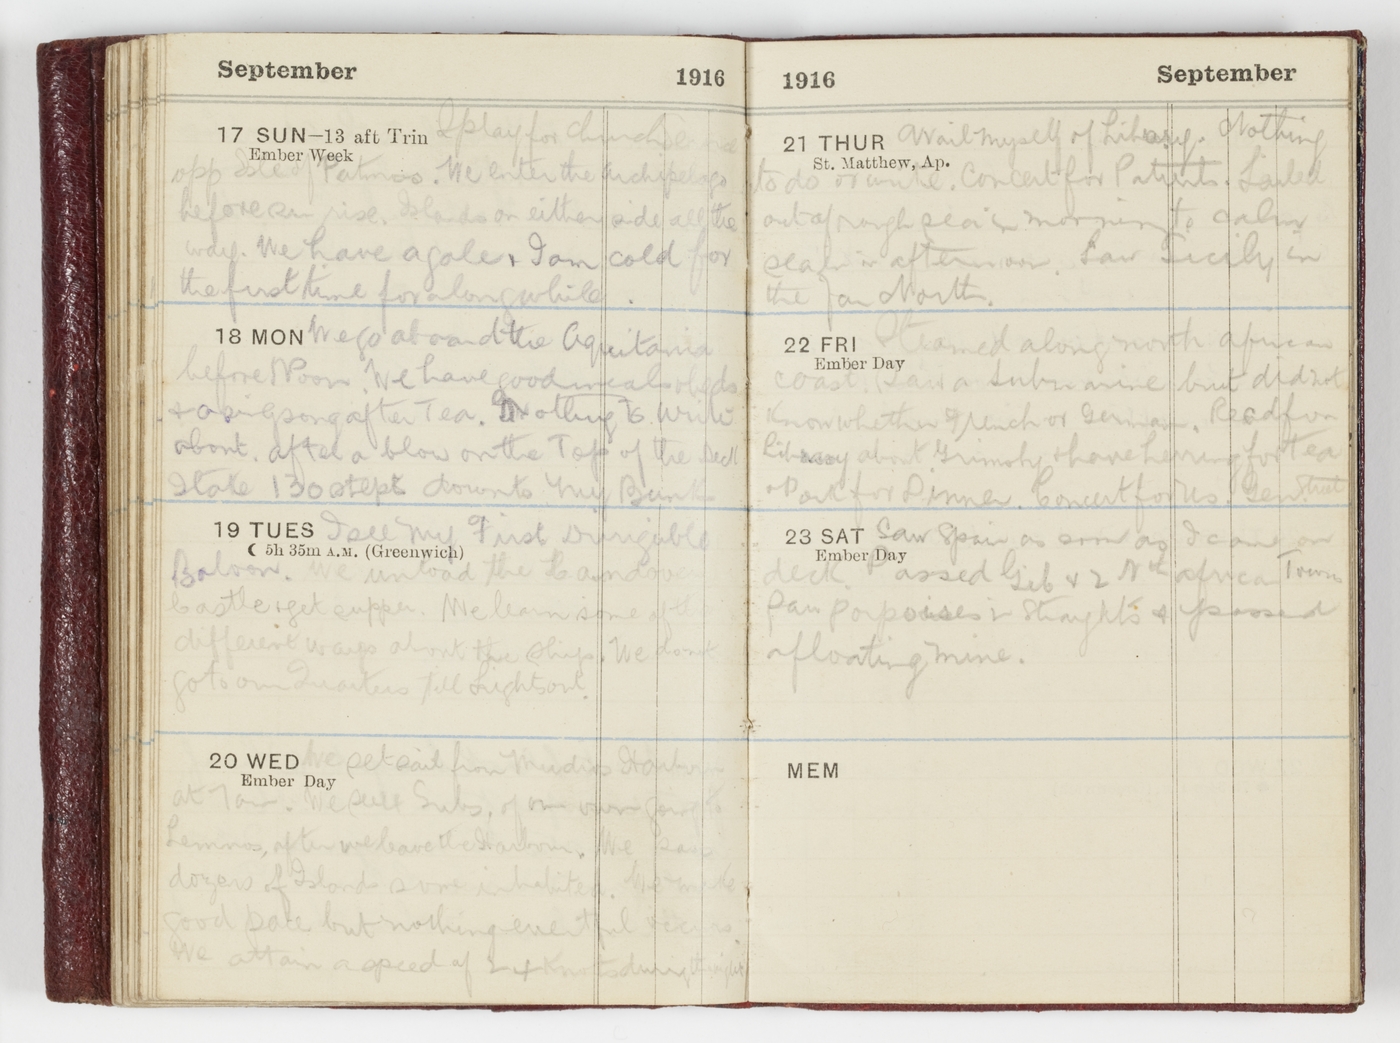 September 1916
17 SUN—13 aft Trin I play for Church
Ember Week
opp Isle of Patmos. We enter the Archipelago
before sun rise. Islands on either side all the
way. We have a gale & I am cold for
the first time for a long while.
18 MON We go aboard the Aquitania
before Noon. We have good meals
& a singsong after Tea. Nothing to write
about. after a blow on the Top of the Deck
State 130 steps down to my Bunk
19 TUES I see my First Dirigible
☾ 5h 35m A.M. (Greenwich)
Baloon. We unload the
Castle & get supper. We learn some of the
different ways about the Ship. We dont
go to our Quarters till Lights out.
20 WED We set sail from Mudros Harbour
Ember Day
at 7am. We see Subs. of our own going to
Lemnos, after we leave the Harbour. We saw
dozens of Island some inhabited. We made
good pace but nothing eventful
We attain a speed of 24 Knots during the night
1916 September
21 THUR Avail myself of Library. Nothing
St. Matthew, Ap.
to do or write. Concert for Patients. Sailed
out of rough sea in morning to calm
sea in afternoon. Saw Sicily in
the far North.
22 FRI Steamed along north african
Ember Day
coast. Saw a Submarine but did not
know whether French or German. Read from
Library about Grimsby & have herring for tea
& Pork for Dinner. Concert for us.
23 SAT Saw Spain as soon as I came on
Ember Day
deck. Passed Gib & 2 Nth africa Towns
Saw porpoises in Straights & passed
a floating mine.
MEM